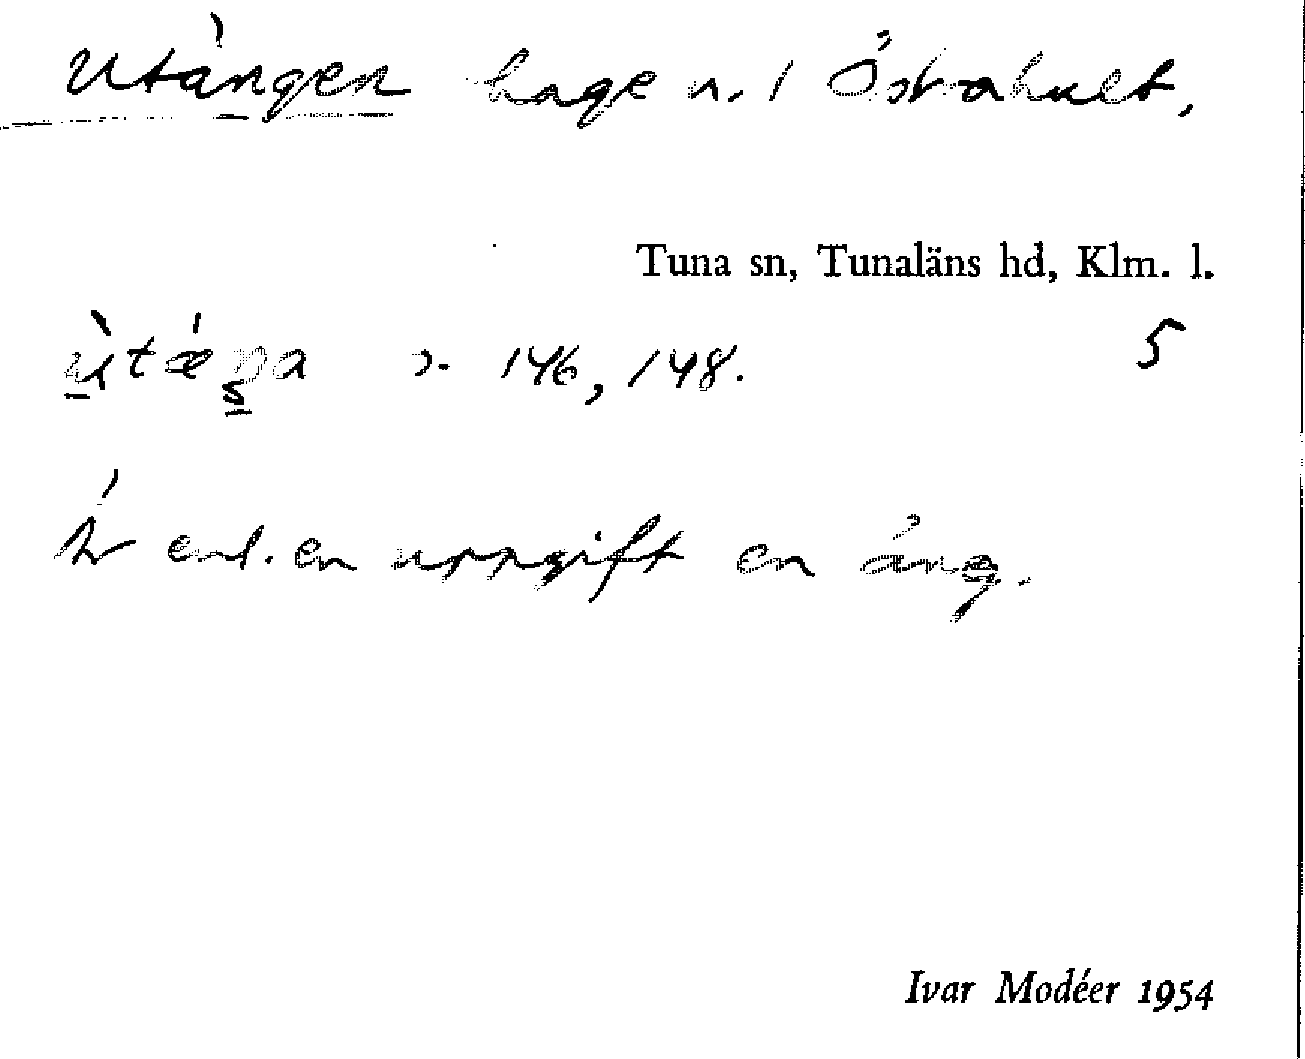 Utängen hage n. i Östrahult,
Tuna sn, Tunaläns hd, Klm. l.
5
146, 148.
Är enl. en uppgift en äng.
Ivar Modéer 1954